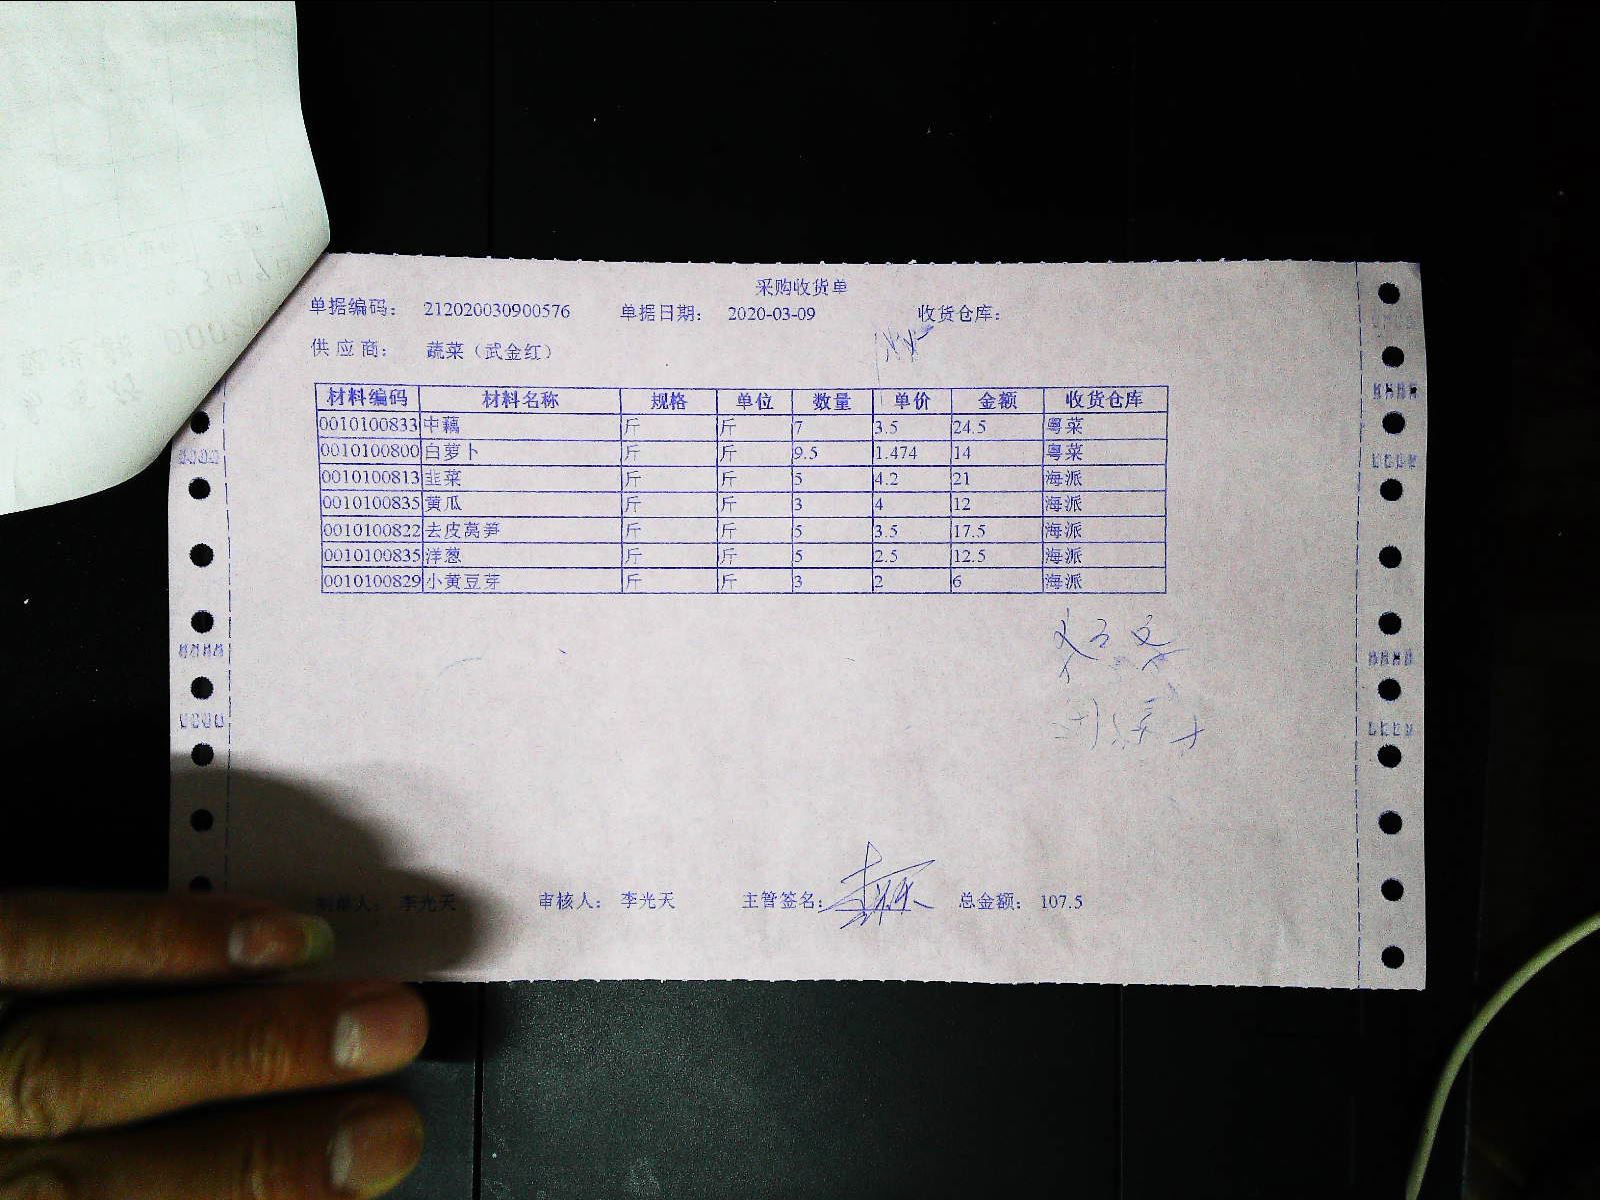 采购收货单
单据编码： 212020030900576 单据日期： 2020-03-09 收货仓库：
供应商： 蔬菜（武金红）
材料编码 材料名称 规格 单位 数量 单价 金额 收货仓库
0010100833 中藕 斤 斤 7 3.5 24.5 粤菜
0010100800 白萝卜 斤 斤 9.5 1.474 14 粤菜
0010100813 韭菜 斤 斤 5 4.2 21 海派
0010100835 黄瓜 斤 斤 3 4 12 海派
0010100822 去皮莴笋 斤 斤 5 3.5 17.5 海派
0010100835 洋葱 斤 斤 5 2.5 12.5 海派
0010100829 小黄豆芽 斤 斤 3 2 6 海派
制单人： 李光天 审核人： 李光天 主管签名： 总金额： 107.5